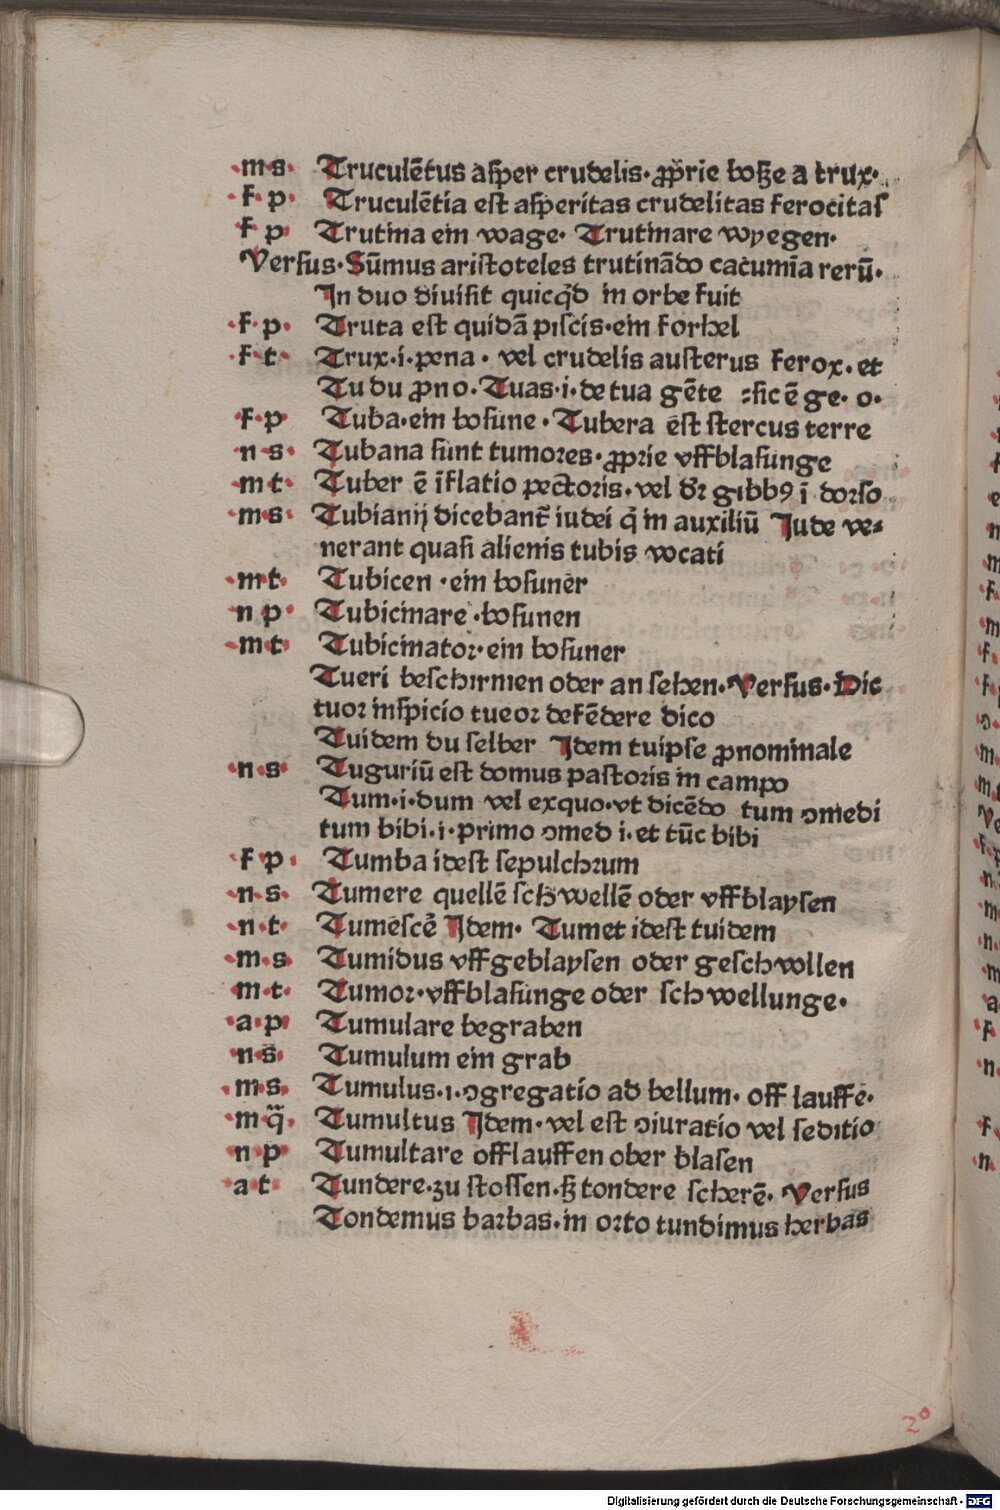 ·m·s· Truculētus asper crudelis· ꝓprie boße a trux·
·f·p· Truculētia est asperitas crudelitas ferocitas
f p Trutina ein wage· Trutinare wyegen·
Versus·Sūmus aristoteles trutinādo cacumīa rerū·
In duo diuisit quicq̇d in orbe fuit
·f·p· Truta est quidā piscis·ein forhel
·f·t· Trux·i·pena· vel crudelis austerus ferox· et
Tu du ꝓno·Tuas·i·de tua gēte sic ē ge· o·
f·p Tuba·ein bosune·Tubera est stercus terre
n·s· Tubana sunt tumores·ꝓprie vffblasunge
·m t· Tuber ē īflatio pectoris·vel dr̄ gibbꝰ ī dorso
·m·s· Tubianij dicebant̄ iudei q̄ in auxiliū Jude ve⸗
nerant quasi alienis tubis vocati
·m t· Tubicen ·ein bosuner
·n p· Tubicinare·bosunen
·m·t· Tubicinator·ein bosuner
Tueri beschirmen oder an sehen·Versus·Dic
tuor inspicio tueor defēdere dico
Tuidem du selber Idem tuipse ꝓnominale
·n·s· Tuguriū est domus pastoris in campo
Tum·i·dum vel exquo·vt dicēdo tum ↄmedi
tum bibi·i·primo ↄmed i·et tūc bibi
·f·p· Tumba idest sepulchrum
·n·s· Tumere quellē schwellē oder vffblaysen
·n·t· Tumescē Idem· Tumet idest tuidem
·m·s Tumidus vffgeblaysen oder geschwollen
·m·t· Tumor·vffblasunge oder schwellunge·
·a·p· Tumulare begraben
·n·s· Tumulum ein grab
·m·s· Tumulus·i·ↄgregatio ad bellum· off lauffē·
·m·q̈· Tumultus Idem·vel est ↄiuratio vel seditio
·n·p Tumultare offlauffen ober blasen
·a·t· Tundere·zu stossen·ß tondere scherē· Versus
Tondemus barbas·in orto tundimus herbas
2°
Digitalisierung gefördert durch die Deutsche Forschungsgemeinschaft - DFG